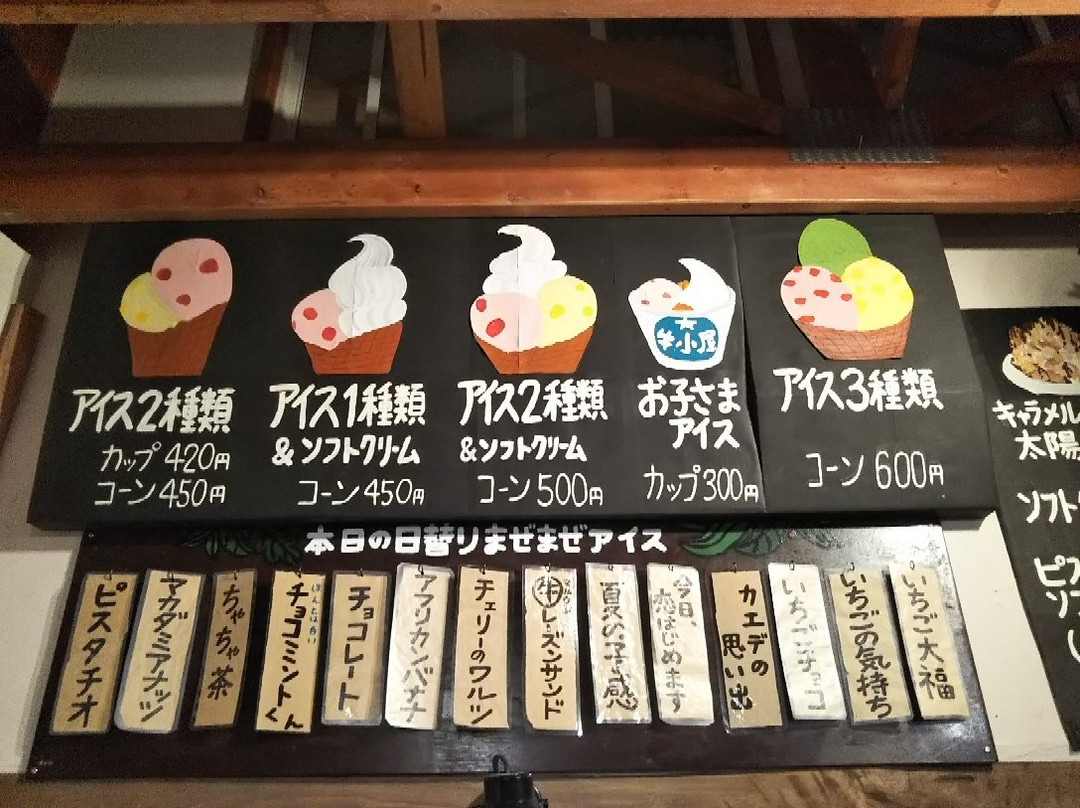 アイス2種類
カップ420円
コーン450円
アイス1種類
&ソフトクリーム
コーン450円
アイス2種類
&ソフトクリーム
コーン500円
牛小屋
お子さま
アイス
カップ300円
アイス3種類
コーン600円
キャラメル
太陽
ソフト
ピス
ソフ
本日の日替りまぜまぜアイス
いちご大福
いちごの気持ち
いちごチョコ
カエデの
思い出
今日、
恋はじめます
夏冬の予感
牛レーズンサンド
チェリーのワルツ
アフリカンバナナ
チョコレート
チョコミントくん
ちゃちゃ茶
マカダミアナッツ
ピスタチオ